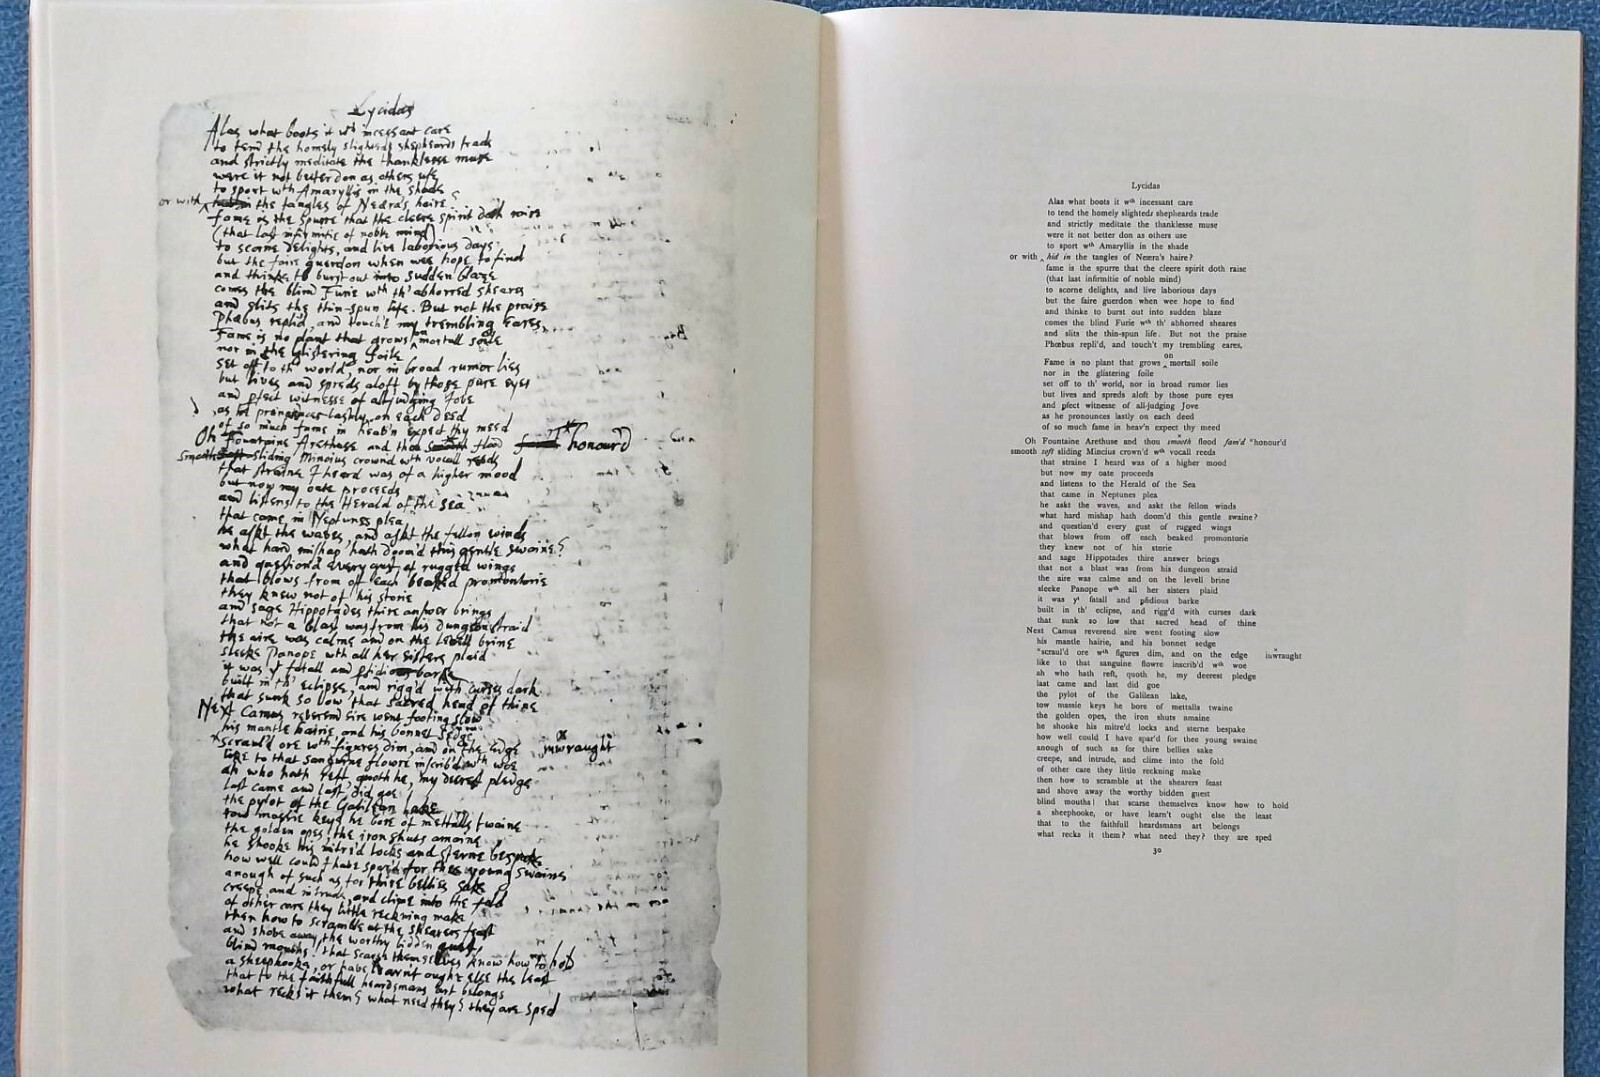 Lycidas
Alas what boots it wth incessant care
to tend the homely slighteds shepheards trade
and strictly meditate the thanklesse muse
were it not better don as others use
to sport wth Amaryllis in the shade
or with hid in the tangles of Neæra's haire?
fame is the spurre that the cleere spirit doth raise
(that last infirmitie of noble mind)
to scorne delights, and live laborious days
but the faire guerdon when wee hope to find
and thinke to burst out into sudden blaze
comes the blind Furie wth th' abhorred sheares
and slits the thin-spun life. But not the praise
Phœbus repli'd, and touch't my trembling eares,
Fame is no plant that grows on mortall soile
nor in the glistering foile
set off to th' world, nor in broad rumor lies
but lives and spreds aloft by those pure eyes
and pfect witnesse of all-judging Jove
as he pronounces lastly on each deed
of so much fame in heav'n expect thy meed
Oh Fountaine Arethuse and thou smooth flood fam'd honour'd
smooth soft sliding Mincius crown'd wth vocall reeds
that straine I heard was of a higher mood
but now my oate proceeds
and listens to the Herald of the Sea
that came in Neptunes plea
he askt the waves, and askt the fellon winds
what hard mishap hath doom'd this gentle swaine?
and question'd every gust of rugged wings
that blows from off each beaked promontorie
they knew not of his storie
and sage Hippotades thire answer brings
that not a blast was from his dungeon straid
the aire was calme and on the levell brine
sleeke Panope wth all her sisters plaid
it was yt fatall and pfidious barke
built in th' eclipse, and rigg'd with curses dark
that sunk so low that sacred head of thine
Next Camus reverend sire went footing slow
his mantle hairie, and his bonnet sedge
scraul'd ore wth figures dim, and on the edge inwraught
like to that sanguine flowre inscrib'd wth woe
ah who hath reft, quoth he, my deerest pledge
last came and last did goe
the pylot of the Galilean lake
tow massie keys he bore of mettalls twaine
the golden opes, the iron shuts amaine
he shooke his mitre'd locks and sterne bespake
how well could I have spar'd for thee young swaine
anough of such as for thire bellies sake
creepe and intrude, and clime into the fold
of other care they little reckning make
then how to scramble at the shearers feast
and shove away the worthy bidden guest
blind mouths! that scarse themselves know how to hold
a sheephooke, or have learn't ought else the least
that to the faithfull heardsmans art belongs
what recks it them? what need they? they are sped
Lycidas
Alas what boots it wth incessant care
to tend the homely slighteds shepheards trade
and strictly meditate the thanklesse muse
were it not better don as others use
to sport wth Amaryllis in the shade
or with ‸ hid in the tangles of Neæra's haire?
fame is the spurre that the cleere spirit doth raise
(that last infirmitie of noble mind)
to scorne delights, and live laborious days
but the faire guerdon when wee hope to find
and thinke to burst out into sudden blaze
comes the blind Furie wth th' abhorred sheares
and slits the thin-spun life. But not the praise
Phœbus repli'd, and touch't my trembling eares,
on
Fame is no plant that grows ‸ mortall soile
nor in the glistering foile
set off to th' world, nor in broad rumor lies
but lives and spreds aloft by those pure eyes
and pfect witnesse of all-judging Jove
as he pronounces lastly on each deed
of so much fame in heav'n expect thy meed
Oh Fountaine Arethuse and thou smooth flood fam'd ˣhonour'd
smooth soft sliding Mincius crown'd wth vocall reeds
that straine I heard was of a higher mood
but now my oate proceeds
and listens to the Herald of the Sea
that came in Neptunes plea
he askt the waves, and askt the fellon winds
what hard mishap hath doom'd this gentle swaine?
and question'd every gust of rugged wings
that blows from off each beaked promontorie
they knew not of his storie
and sage Hippotades thire answer brings
that not a blast was from his dungeon straid
the aire was calme and on the levell brine
sleeke Panope wth all her sisters plaid
it was yt fatall and pfidious barke
built in th' eclipse, and rigg'd with curses dark
that sunk so low that sacred head of thine
Next Camus reverend sire went footing slow
his mantle hairie, and his bonnet sedge
ˣscraul'd ore wth figures dim, and on the edge inwraught
like to that sanguine flowre inscrib'd wth woe
ah who hath reft, quoth he, my deerest pledge
last came and last did goe
the pylot of the Galilean lake,
tow massie keys he bore of mettalls twaine
the golden opes, the iron shuts amaine
he shooke his mitre'd locks and sterne bespake
how well could I have spar'd for thee young swaine
anough of such as for thire bellies sake
creepe, and intrude, and clime into the fold
of other care they little reckning make
then how to scramble at the shearers feast
and shove away the worthy bidden guest
blind mouths! that scarse themselves know how to hold
a sheephooke, or have learn't ought else the least
that to the faithfull heardsmans art belongs
what recks it them? what need they? they are sped
30